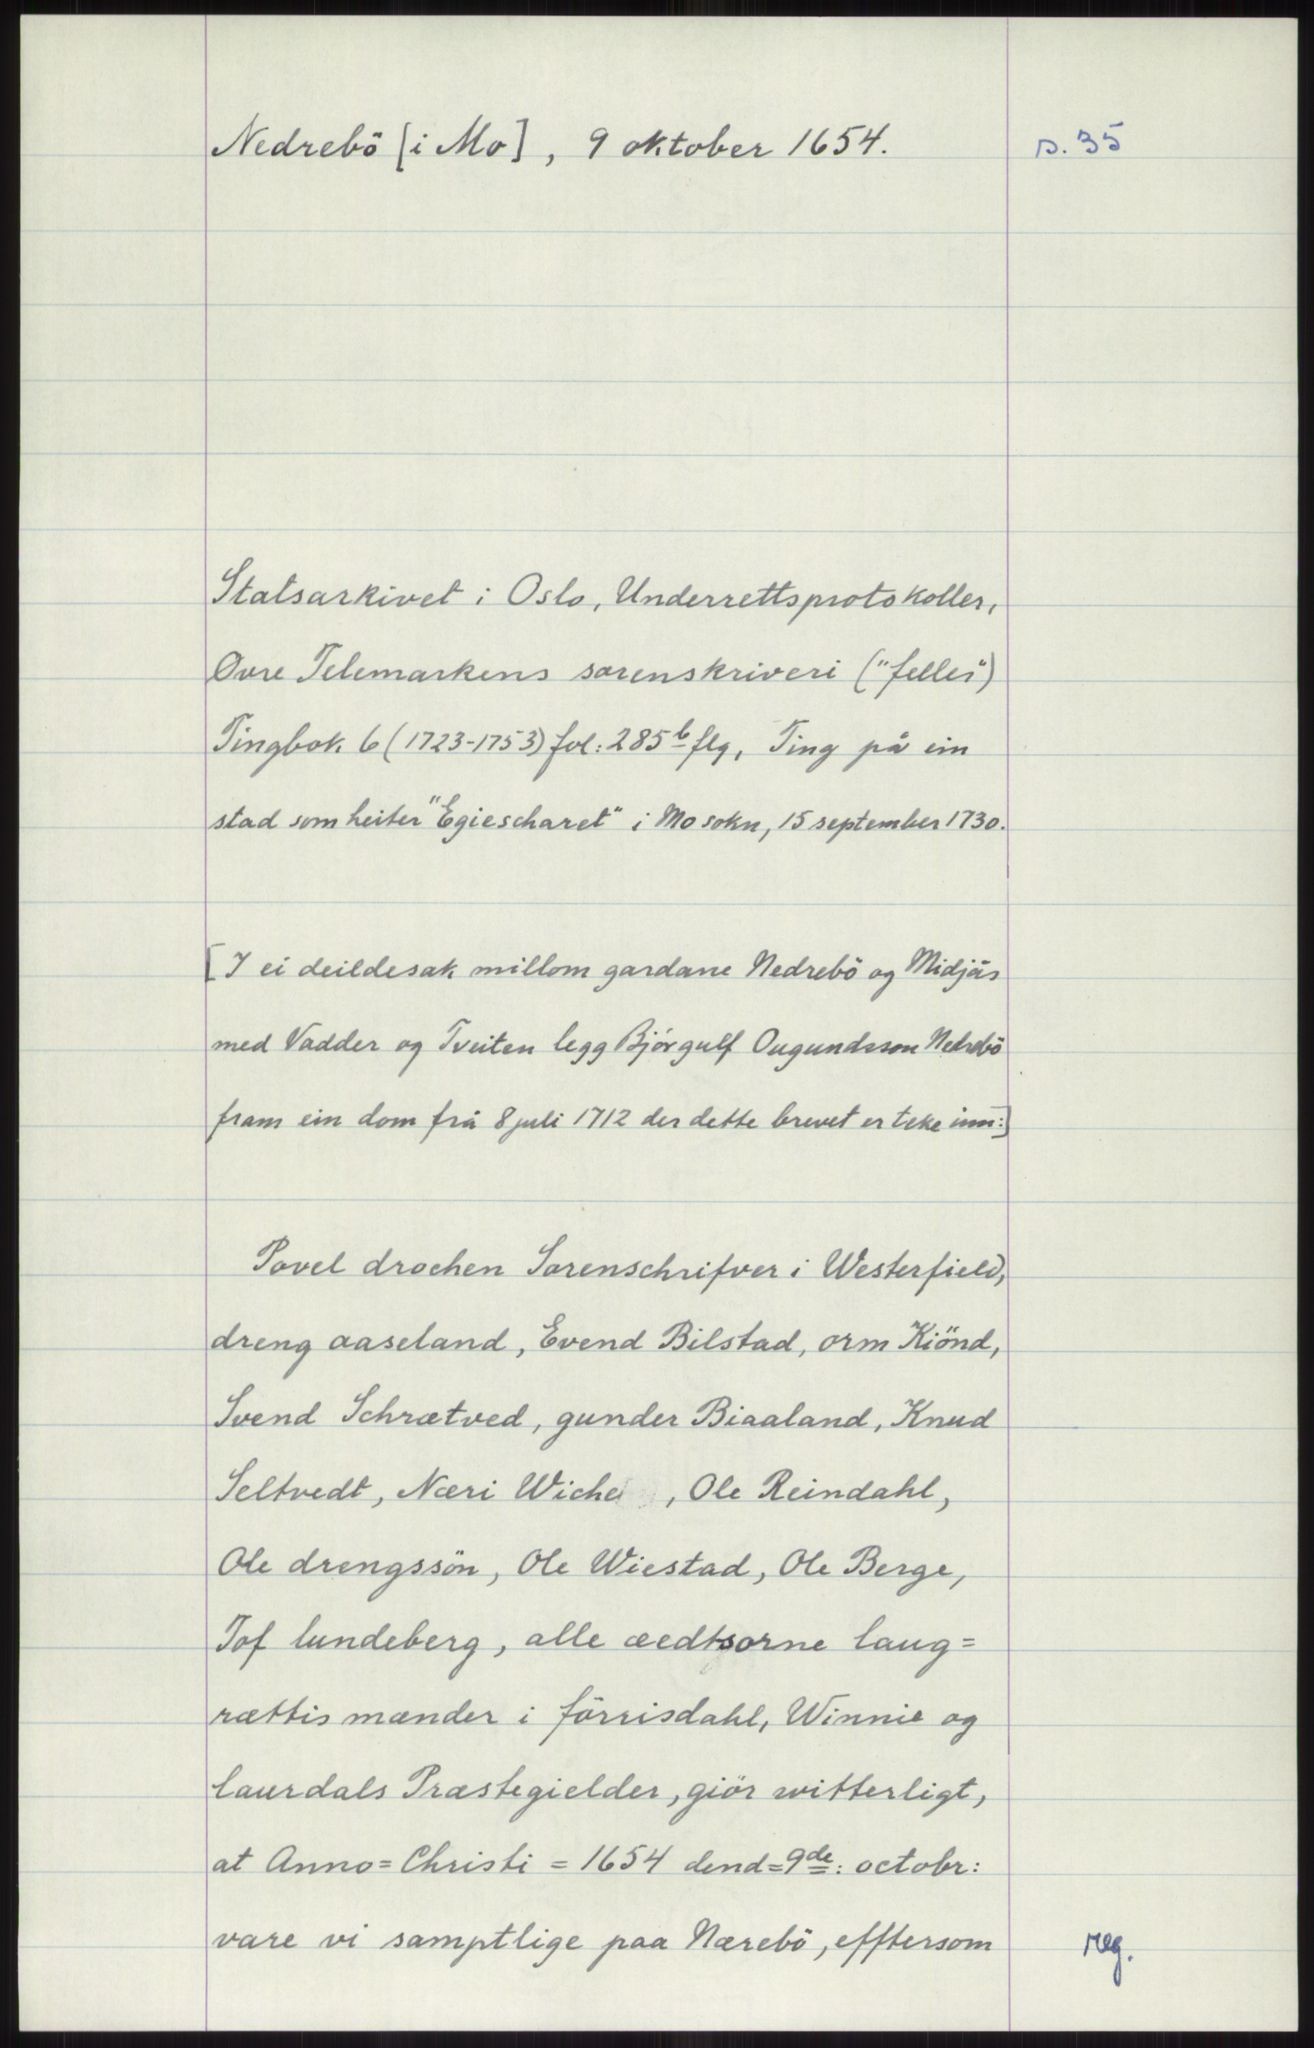 Nedrebö [i Mo], 9 oktober 1654.
s. 35
Statsarkivet i Oslo, Underrettsprotokoller,
Øvre Telemarkens sorenskriveri ("felles")
Tingbok 6 (1723-1753) fol: 285b flg, Ting på ein
stad som heiter "Egiescharet" i Mo sokn, 15 september 1730.
[I ei deildesak millom gardane Nedrebö og Midjås
med Vadder og Tveiten legg Bjórgulf Ougundsson Nedrebö
fram ein dom frå 8 juli 1712 der dette brevet er teke inn:]
Povel drochen Sorenschrifver i Westerfield,
dreng aaseland, Evend Bilstad, orm Kiönd,
Svend Schrætved, gunder Biaaland, Knud
Seltvedt, Næri Wiche, Ole Reindahl,
Ole drengssön, Ole Wiestad, Ole Berge,
Tof lundeberg, alle æedtsorne laug=
rættis mænder i förrisdahl, Winnie og
laurdals Præstegielder, giör witterligt,
at Anno=Christi = 1654 dend=9de: octobr:
vare vi samptlige paa Nærebö, efftersom
reg.